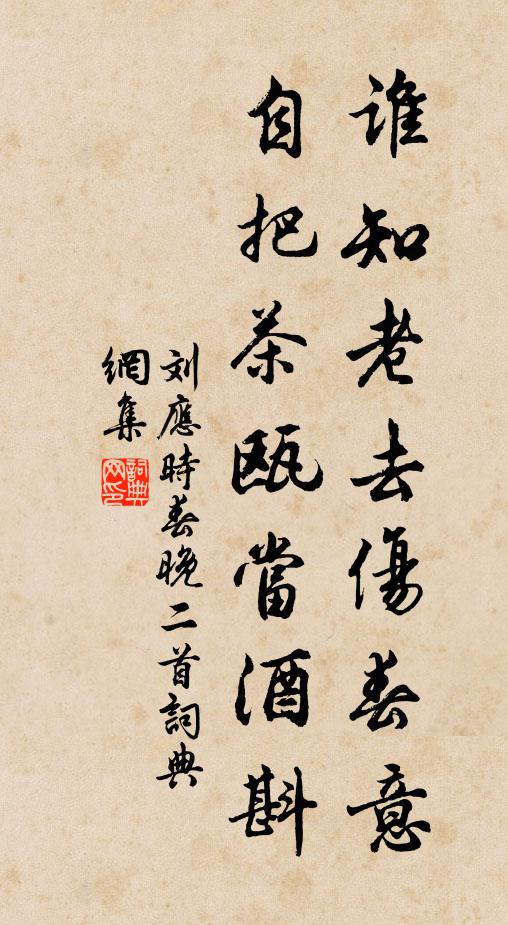 誰知老去傷春意
自把茶甌當酒斟
刘應時春晚二首詞典
網集
詞典
网印